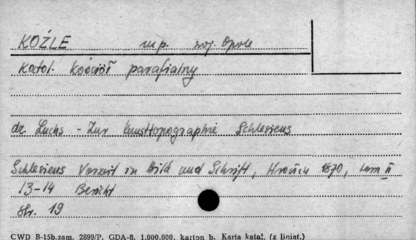 KOŹLE m.p. woj. Opole
Katol. kościół parafialny
dr. Luchs - Zur Kunsttopographie Schlesiens
Schlesiens Vorzeit in Bild und Schrift, 1870, tom II
13-14 Bericht
Str. 19
CWD B-15b.zam. 2899/P. GDA-8. 1.000.000. karton b. Karta katal. (z liniat.)